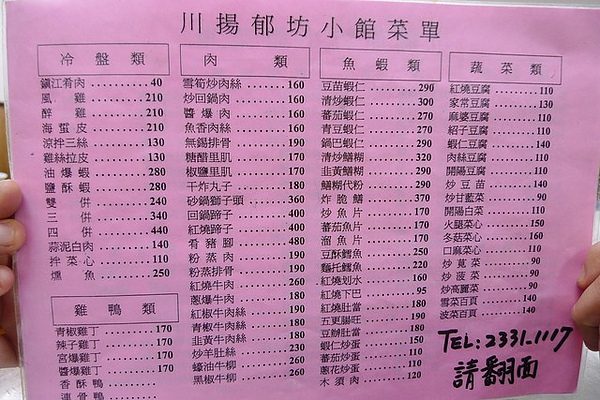 川揚郁坊小館菜單
冷盤類
鎮江肴肉 40
風雞 210
醉雞 210
海蜇皮 210
涼拌三絲 130
雞絲拉皮 130
油爆蝦 280
鹽酥蝦 280
雙併 240
三併 340
四併 440
蒜泥白肉 140
拌菜心 110
燻魚 250
雞鴨類
青椒雞丁 170
辣子雞丁 170
宮爆雞丁 170
醬爆雞丁 170
香酥鴨
連骨鴨
肉類
雪筍炒肉絲 160
炒回鍋肉 160
醬爆肉 160
魚香肉絲 160
無錫排骨 190
糖醋里肌 170
椒鹽里肌 170
干炸丸子 180
砂鍋獅子頭 360
回鍋蹄子 400
紅燒蹄子 400
肴豬腳 480
粉蒸肉 190
粉蒸排骨 190
紅燒牛肉 260
蔥爆牛肉 180
紅椒牛肉絲 190
青椒牛肉絲 180
韭黃牛肉絲 180
炒羊肚絲 230
蠔油牛柳 260
黑椒牛柳 260
魚蝦類
豆苗蝦仁 290
清炒蝦仁 300
蕃茄蝦仁 270
青豆蝦仁 270
鍋巴蝦仁 290
清炒鱔糊 320
韭黃鱔糊 290
鱔糊代粉 290
炸脆鱔 370
炒魚片 170
蕃茄魚片 170
溜魚片 170
豆酥鱈魚 250
麵托鱈魚 220
紅燒划水 160
紅燒下巴 95
紅燒肚當 180
五更腸旺 190
豆辦肚當 180
蝦仁炒蛋 150
蕃茄炒蛋 110
蔥花炒蛋 110
木須肉 120
蔬菜類
紅燒豆腐 110
家常豆腐 130
麻婆豆腐 110
紹子豆腐 110
蝦仁豆腐 140
肉絲豆腐 110
開陽豆腐 110
炒豆苗 140
炒甘藍菜 90
開陽白菜 110
火腿菜心 150
冬菇菜心 160
口麻菜心 110
炒莧菜 90
炒菠菜 90
炒高麗菜 90
雪菜百頁 140
波菜百頁 140
TEL:2331-1117
請翻面